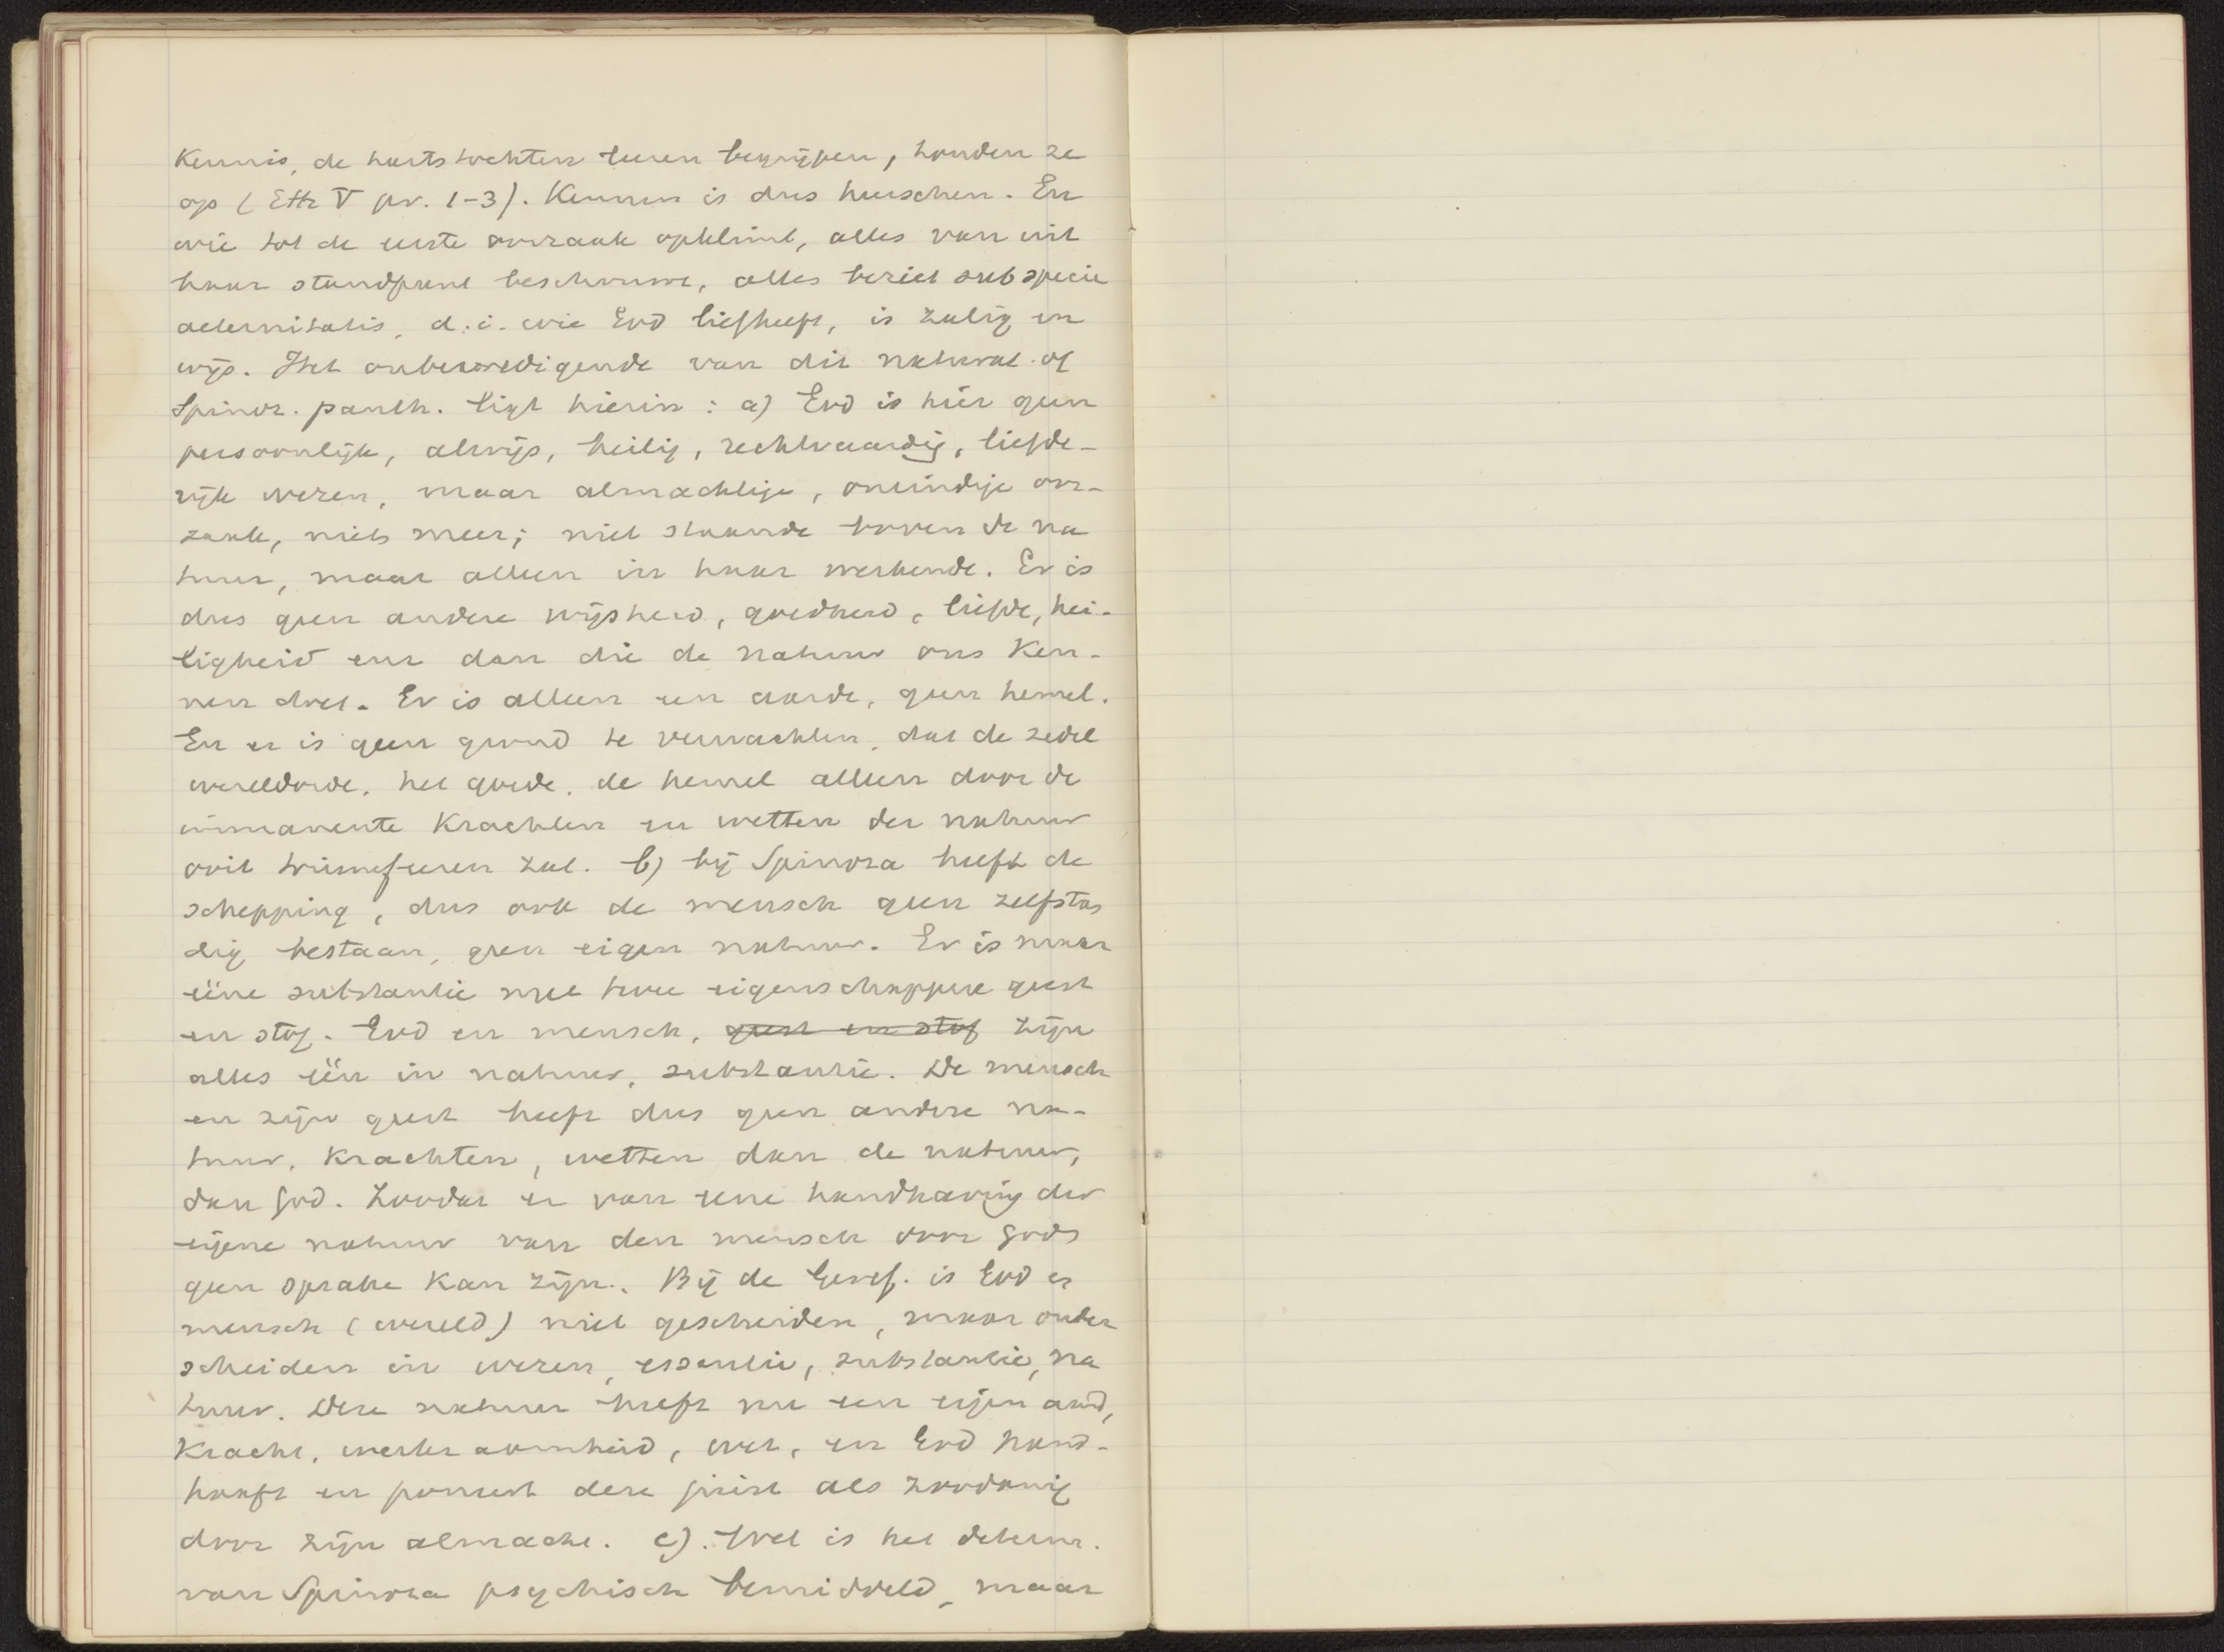 Kennis, de hartstochten leeren begrijpen, houden ze
op (Eth V pr. 1-3). Kennen is dus heerschen. En
wie tot de eerste oorzaak opklimt, alles van uit
haar standpunt beschouwt, alles beziet sub specie
aeternitatis, d.i. wie God liefheeft, is zalig en
wijs. Het onbevredigende van dit natural. of
Spinoz. panth. ligt hierin: a) God is hier geen
persoonlijk, alwijs, heilig, rechtvaardig, liefde-
rijk wezen, maar almachtige, oneindige oor-
zaak, niets meer; niet staande boven de na
tuur, maar alleen in haar werkende. Er is
dus geen andere wijsheid, goedheid, liefde, hei-
ligheid enz dan die de natuur ons ken-
nen doet. Er is alleen een aarde, geen hemel.
En er is geen grond te verwachten, dat de zedel
wereldorde, het goede, de hemel alleen door de
immanente Krachten en wetten der natuur
ooit triumfeeren zal. b) bij Spinoza heeft de
schepping, dus ook de mensch geen zelfstan
dig bestaan, geen eigen natuur. Er is maar
ééne substantie met twee eigenschappen geest
en stof. God en mensch, geest en stof zijn
alles één in natuur, substantie. De mensch
en zijn geest heeft dus geen andere na-
tuur, Krachten, wetten dan de natuur,
dan God. Zoodat er van eene handhaving der
eigene natuur van den mensch door Gods
geen sprake kan zijn. Bij de Geref. is God en
mensch (wereld) niet gescheiden, maar onder
scheiden in wezen, essentie, substantie, na
tuur. Deze natuur heeft nu een eigen aard,
Kracht, werkzaamheid, wet, en God hand-
haaft en poneert deze juist als zoodanig
door zijn almacht. c). Wel is het determ.
van Spinoza psychisch bemiddeld, maar